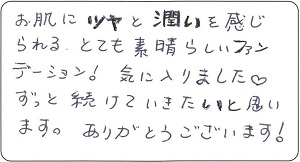 お肌にツヤと潤いを感じ
られる、とても素晴らしいファン
デーション! 気に入りました♡
ずっと続けていきたいと思い
ます。ありがとうございます!